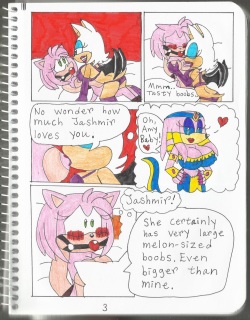 Mmm..
Tasty boobs.
No wonder how
much Jashmir
loves you.
Oh,
Amy
Baby!
Jashmir!
She certainly
has very large
melon-sized
boobs. Even
bigger than
mine.
3